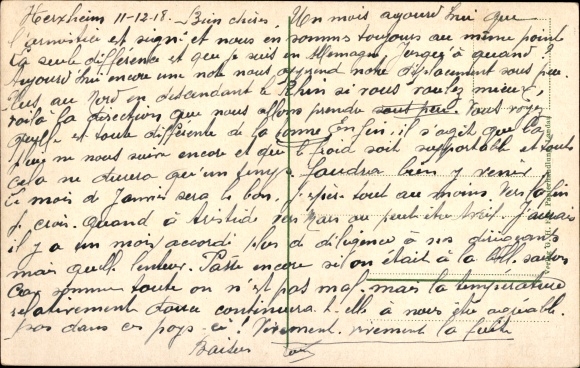 Herxheim 11-12-18. Bien chères, Un mois aujourd'hui que
l'armistice est signé et nous en sommes toujours au même point
la seule différence est que je suis en Allemagne. Jusqu'à quand?
Aujourd'hui encore une note nous apprend notre déplacement sous peu.
Plus au Nord en descendant le Rhin si vous voulez mieux,
voilà la direction que nous allons prendre sous peu. Vous voyez
qu'elle est toute différente de la bonne. Enfin, il s'agit que la
ne nous suive encore et que le froid soit supportable et tout
cela ne durera qu'un temps. Faudra bien y venir
Le mois de Janvier sera le bon, j'espère tout au moins vers la fin
je crois. Quand à Aristide vers Mars ou peut être Avril. J'aurais
il y a un mois accordé plus de diligence à nos dirigeants
mais quelle lenteur. Passe encore si on était à la
somme toute on n'est pas mal. mais la température
relativement douce continuera t-elle à nous être agréable.
pas dans ces pays-ci! Vivement, vivement la fuite
Baisers